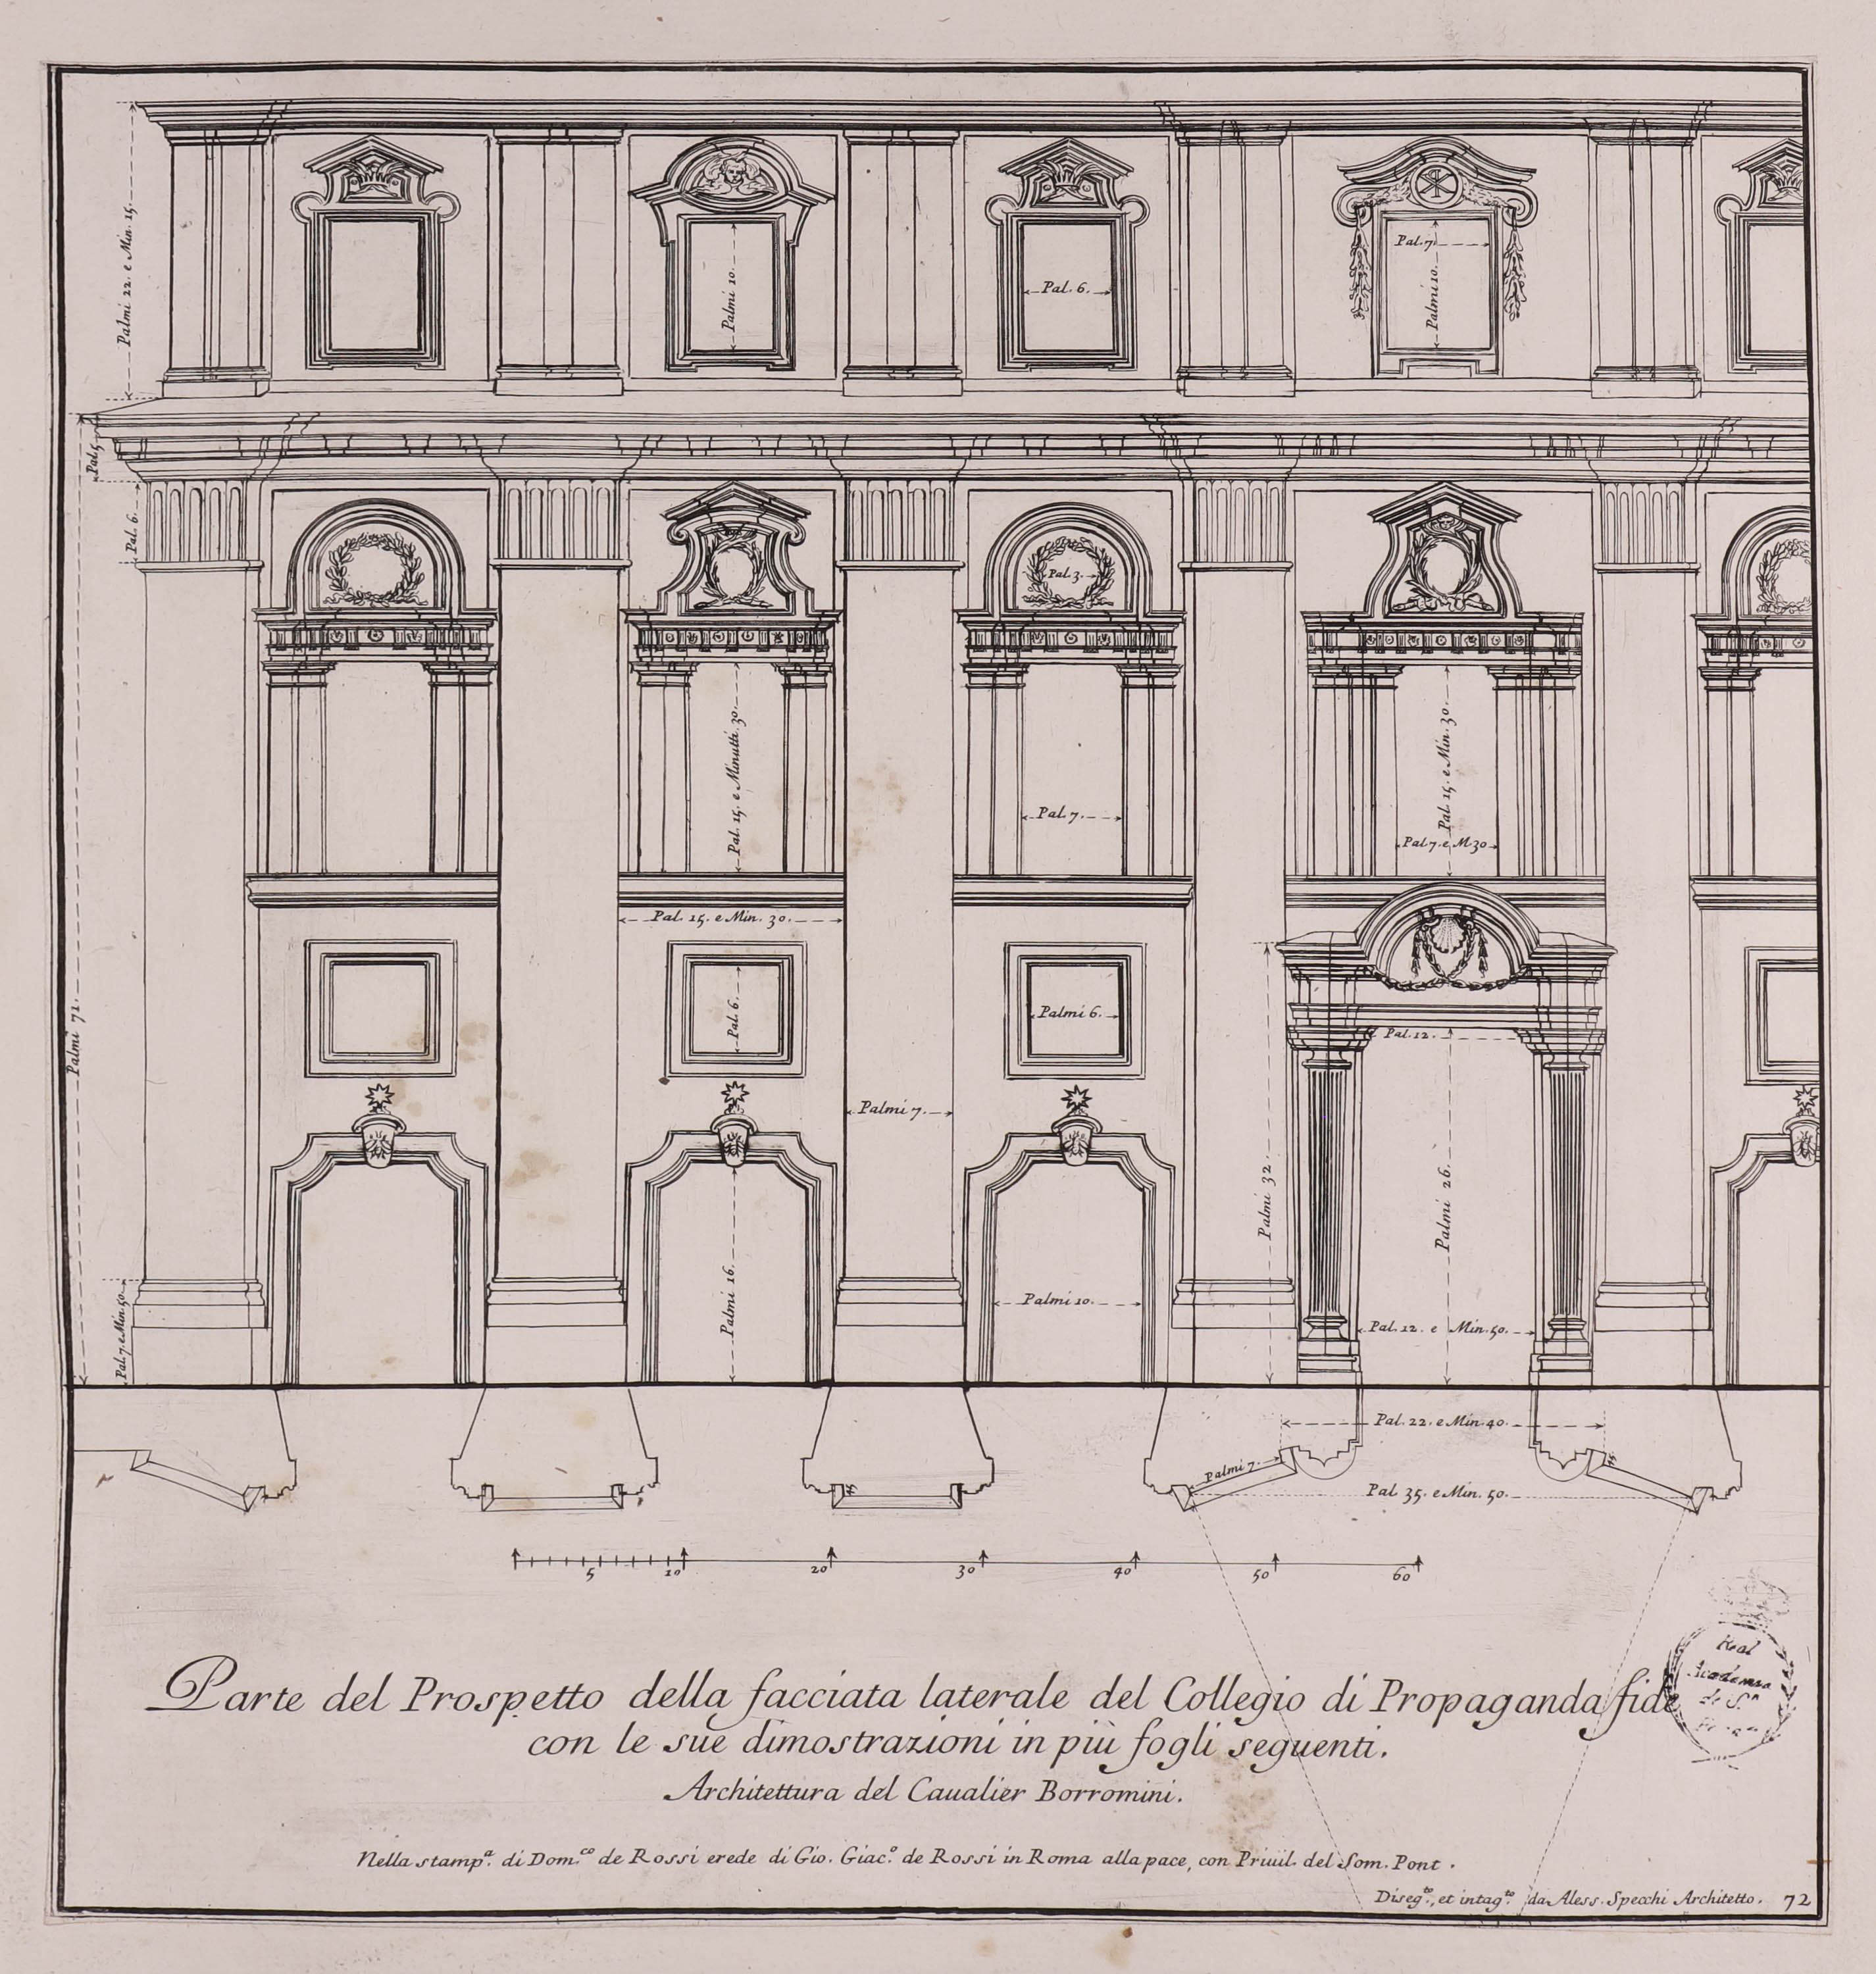 Palmi 22. e Min. 15.
Palmi 10.
Pal. 6.
Pal. 7.
Palmi 10.
Pal. 5.
Pal. 6.
Pal. 3.
Pal. 15. e Minuti 30.
Pal. 7.
Pal. 15. e Min. 30.
Pal. 7. e M. 30
Pal. 15. e Min. 30.
Palmi 71.
Pal. 6.
Palmi 6.
Pal. 12.
Palmi 7.
Palmi 32.
Palmi 26.
Palmi 16.
Palmi 10.
Pal. 12. e Min. 50.
Pal. 7. e Min. 50.
Pal. 22. e Min. 40.
Palmi 7.
Pal. 35. e Min. 50.
5 10 20 30 40 50 60
Parte del Prospetto della facciata laterale del Collegio di Propaganda fide
con le sue dimostrazioni in più fogli seguenti.
Architettura del Caualier Borromini.
Nella stamp.ª di Dom.co de Rossi erede di Gio. Giac.o de Rossi in Roma alla pace, con Priuil. del Som. Pont.
Diseg.to, et intag.to da Aless. Specchi Architetto. 72
Real
Academia
de S.n